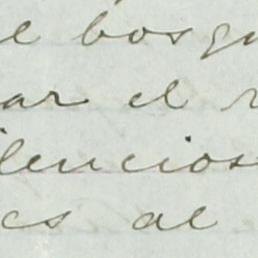 el bosqu
ar el r
ilencios
es al